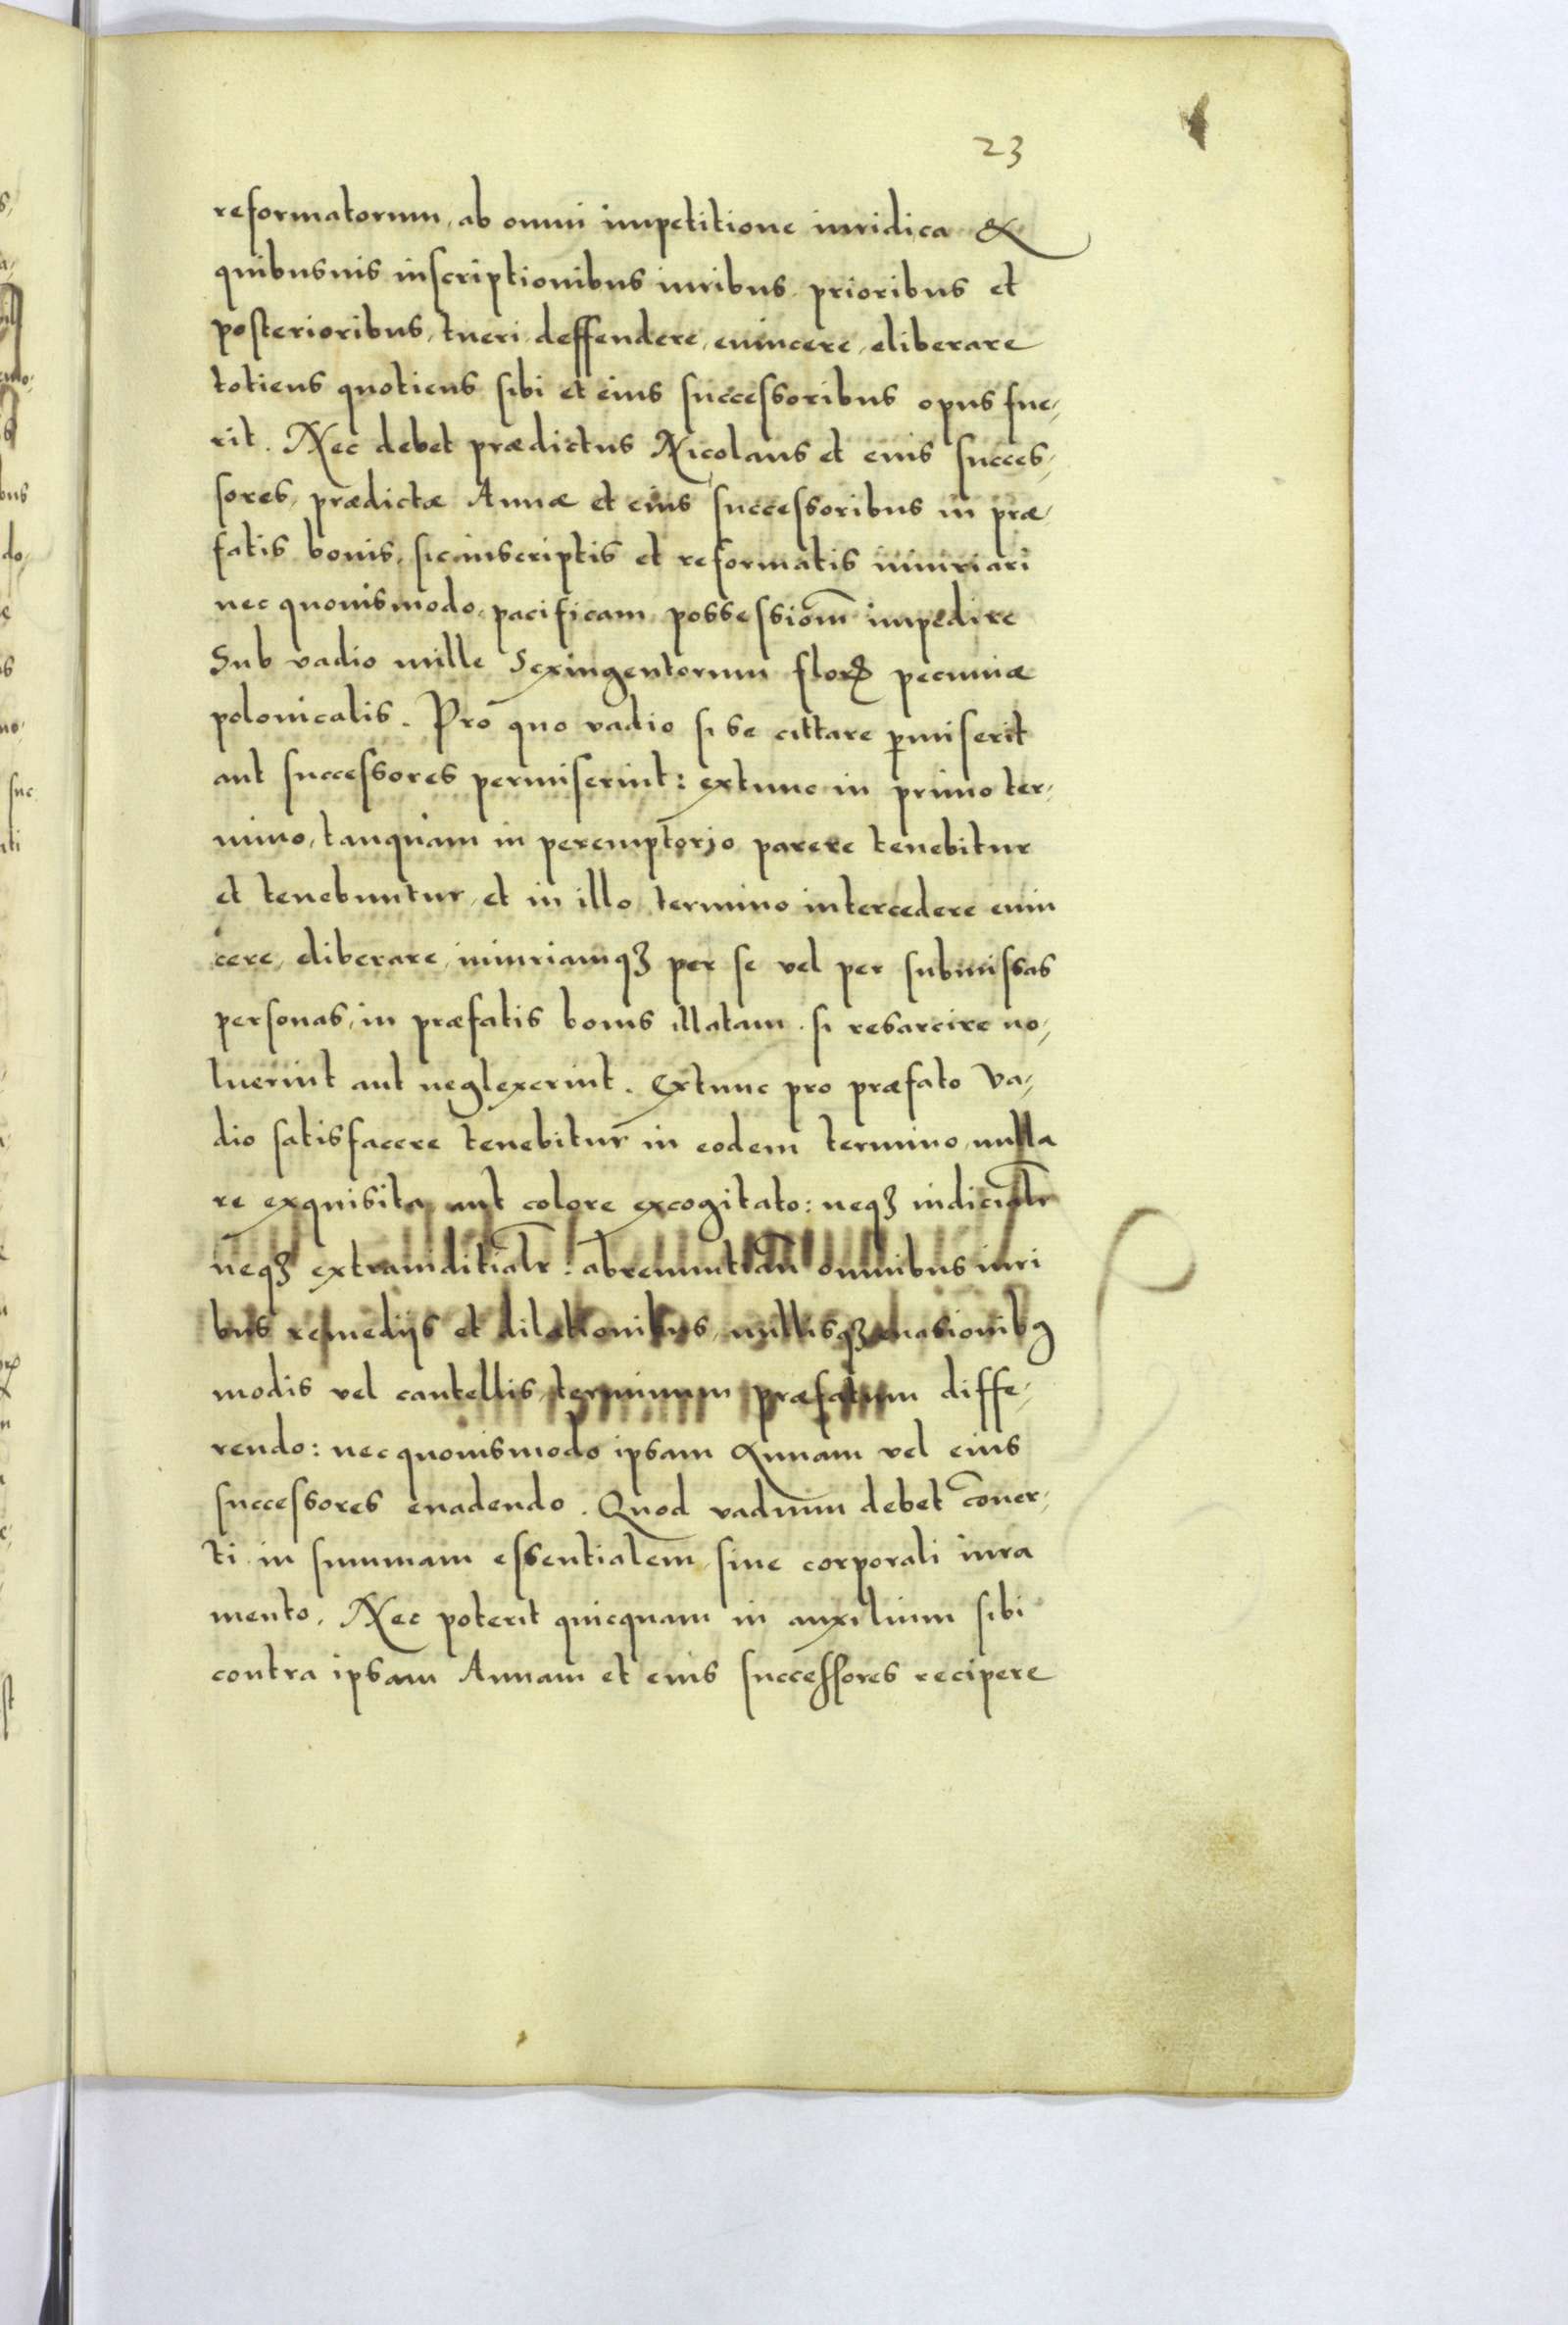 23
reformatorum, ab omni impetitione iuridica &
quibusuis inscriptionibus iuribus prioribus et
posterioribus, tueri, deffendere, euincere, eliberare
totiens quotiens sibi et eius successoribus opus fue,
rit. Nec debet prædictus Nicolaus et eius succes,
sores, prædictæ Annæ et eius successoribus in præ,
fatis bonis, sic inscriptis et reformatis iniuriari
nec quouismodo, pacificam possessiom̄ impedire
Sub vadio mille Sexingentorum florꝝ pecuniæ
polonicalis. Pro quo vadio si se cittare ꝑmiserit
aut successores permiserint: extunc in primo ter,
mino, tanquam in peremptorio parere tenebitur
et tenebuntur, et in illo termino intercedere euin
cere, eliberare, iniuriamqꝫ per se vel per submissas
personas, in præfatis bonis illatam. si resarcire no,
luerint aut neglexerint. Extunc pro præfato Va,
dio satisfacere tenebitur in eodem termino, nulla
re exquisita aut colore excogitato: neqꝫ iudicialr̄
neqꝫ extraiuditialr̄: abrenuntian̄ omnibus iuri
bus remediis et dilationibus, nullisqꝫ euasionibꝯ
modis vel cautellis, terminum præfatum diffe,
rendo: nec quouismodo ipsam Annam vel eius
successores euadendo. Quod vadium debet cōuer,
ti in summam essentialem, sine corporali iura
mento. Nec poterit quicquam in auxilium sibi
contra ipsam Annam et eius successores recipere